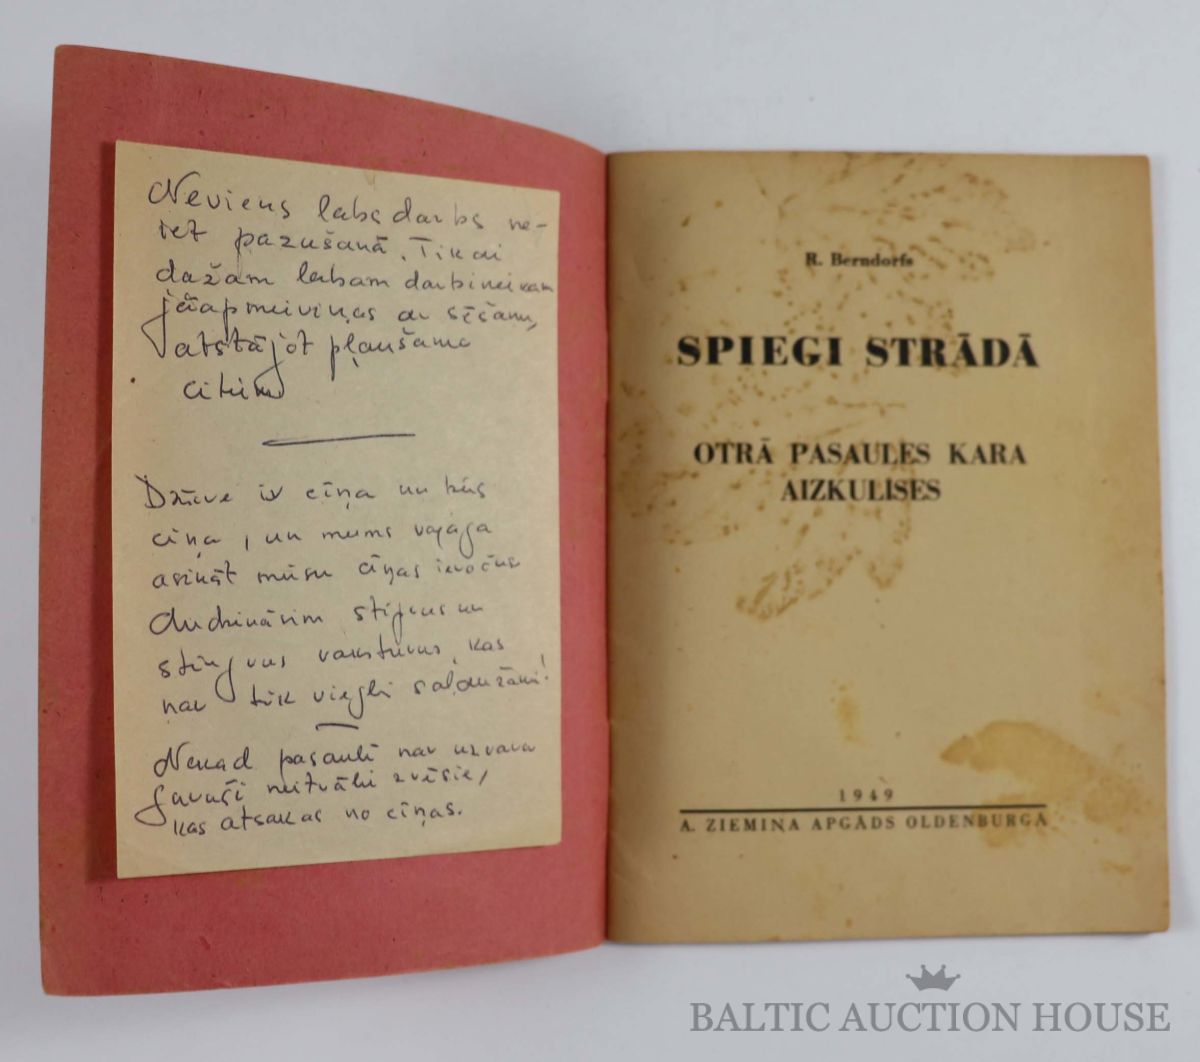 Neviens labs darbs ne-
iet pazušanā. Tikai
dažam labam darbiniekam
jāapmierinas ar sēšanu,
atstājot pļaušanu
citiem
Dzīve ir cīņa un būs
cīņa, un mums vajaga
asināt mūsu cīņas ieročus
audzināsim stiprus un
stingrus raksturus, kas
nav tik viegli salaužami!
Nekad pasaulē nav uzvaru
guvuši
kas atsakas no cīņas.
R. Berndorfs
SPIEGI STRĀDĀ
OTRĀ PASAULES KARA
AIZKULISES
1949
A. ZIEMIŅA APGĀDS OLDENBURGĀ
BALTIC AUCTION HOUSE